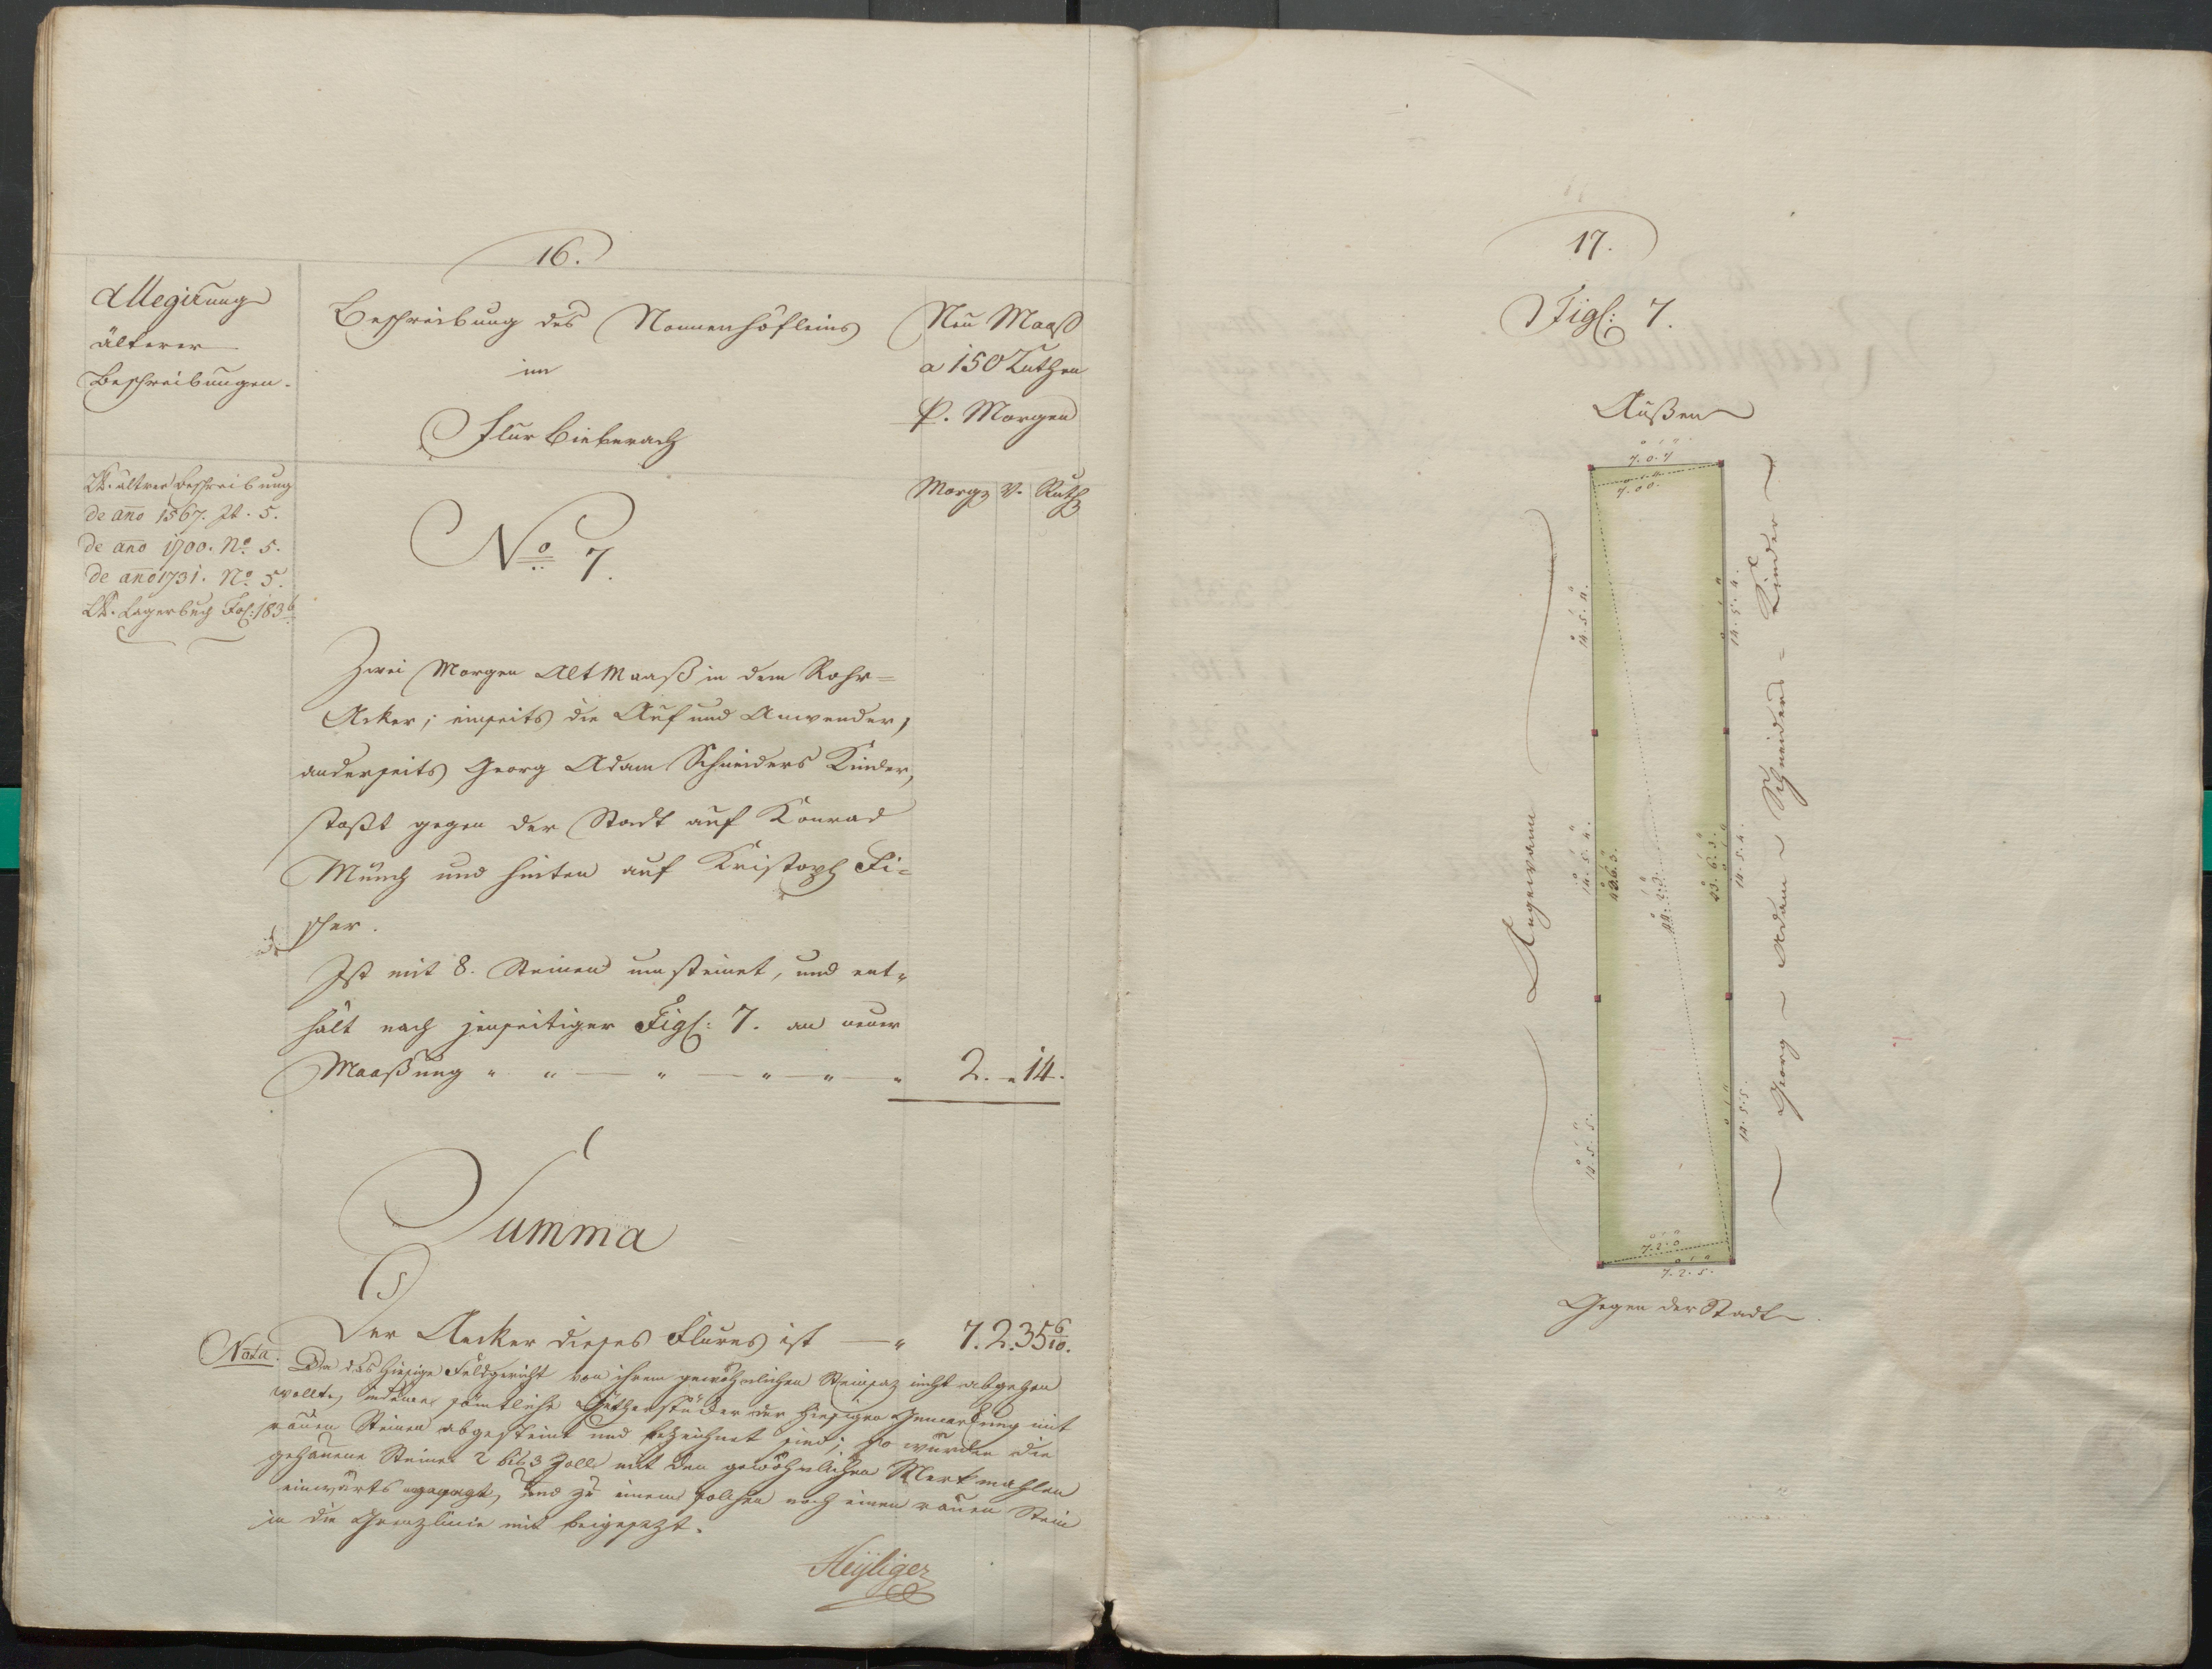 16.
Allegirung
älterer
Beschreibungen.
Beschreibung des Nonnenhöfleins
im
Flur Bieberach
Neu Maaß
a 150 Ruthen
p. Morgen
Morg V. Ruth
ältrer Beschreibung
de año 1567. 5.
de año 1700. No. 5.
de año 1731. No. 5.
Lagerbuch Fol: 183 b
No. 7.
Zwei Morgen Altmaaß in dem Rohr=
Acker; einseits die Auf und Anwender,
anderseits Georg Adam Schneiders Kinder,
stoßt gegen der Stadt auf Konrad
Münch und hinten auf Kristoph Fi=
scher.
Ist mit 8. Steinen umsteinet, und ent„
hält nach jenseitiger Figl: 7. an neuer
Maaßung „ „ — „ — „ „ — „ 2. „ 14.
Summa
Der Aecker dieses Flures ist — „ 7. 2. 35 6/10.
Nota. Da das hiesige Feldgericht von ihrem gewöhnlichen Steinsaz nicht abgehen
wollte, indeme sämtliche Gütherstücker der hiesigen Gemarkung mit
rauen Steinen abgesteint und bezeichnet sind; so wurden die
gehauene Steine 2 bis 3 Zoll mit den gewöhnlichen Merkmahlen
einwärts gesezt, und zu einem solchen noch einen rauen Stein
in die Grenzlinie mit beigesezt.
Heyliger
17.
Figl: 7.
Außen
7. 0. 7
7. 0 0.
14. 5. 4.
14. 5. 4.
14. 5. 4.
14. 5. 4.
43. 6. 3.
14. 5. 5.
14. 5. 5.
7. 2. 0
7. 2. 5.
Angewann
Georg Adam Schneiders = Kinder
Gegen der Stadt